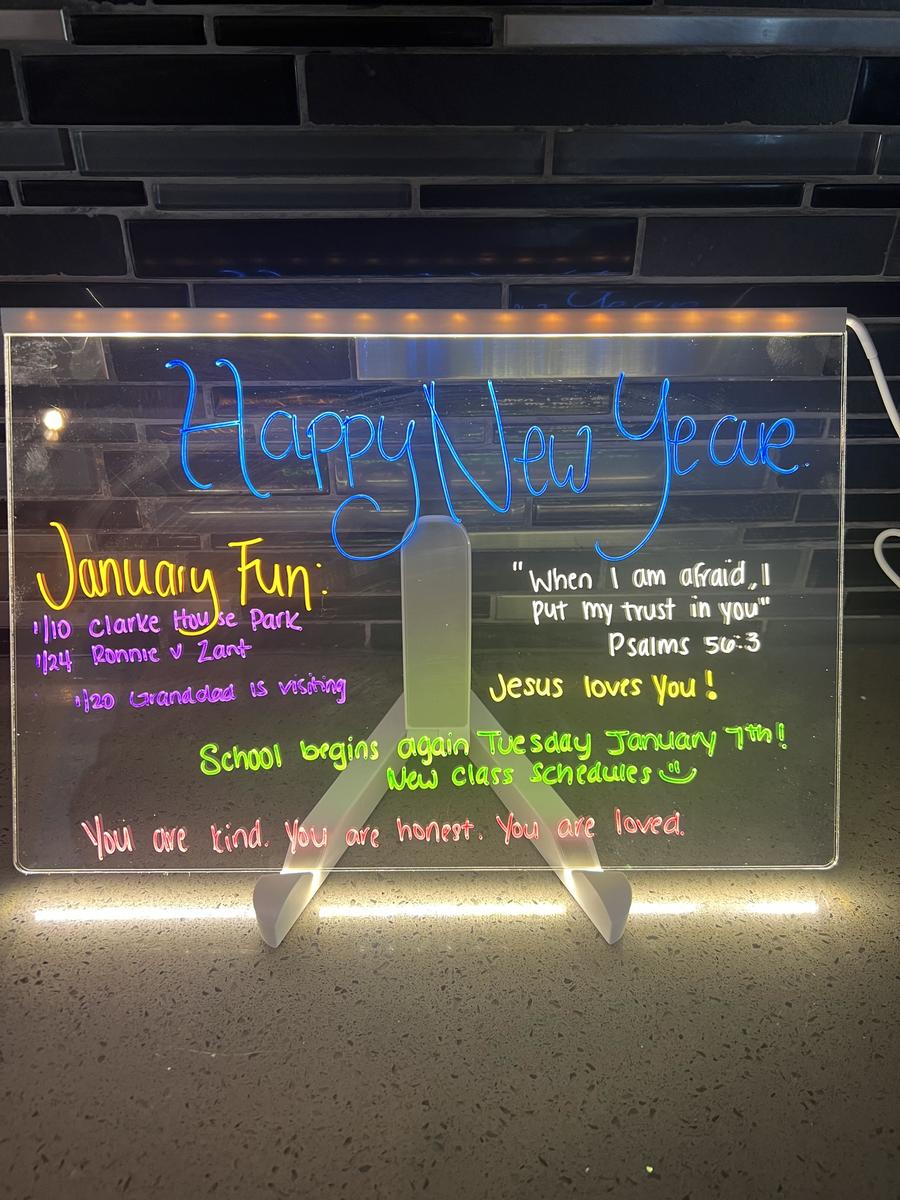 Happy New Year.
January Fun:
1/10 Clarke House Park
1/24 Ronnie v Zant
1/20 Granddad is visiting
"When I am afraid, I
put my trust in you"
Psalms 56:3
Jesus loves You!
School begins again Tuesday January 7th!
New Class Schedules
You are kind. You are honest. You are loved.